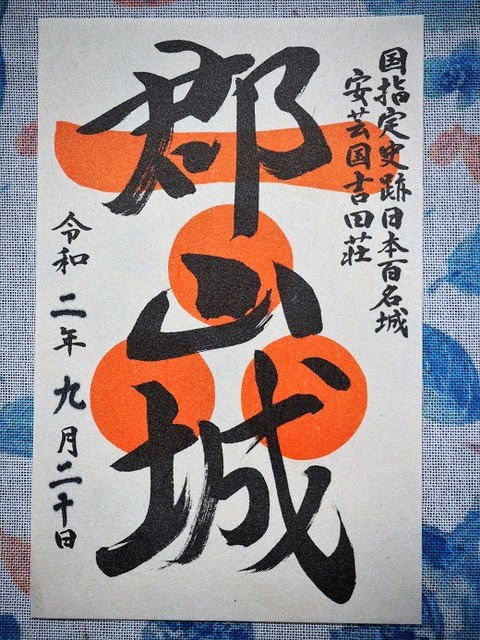 国指定史跡日本百名城
安芸国吉田荘
郡山城
令和二年九月二十日